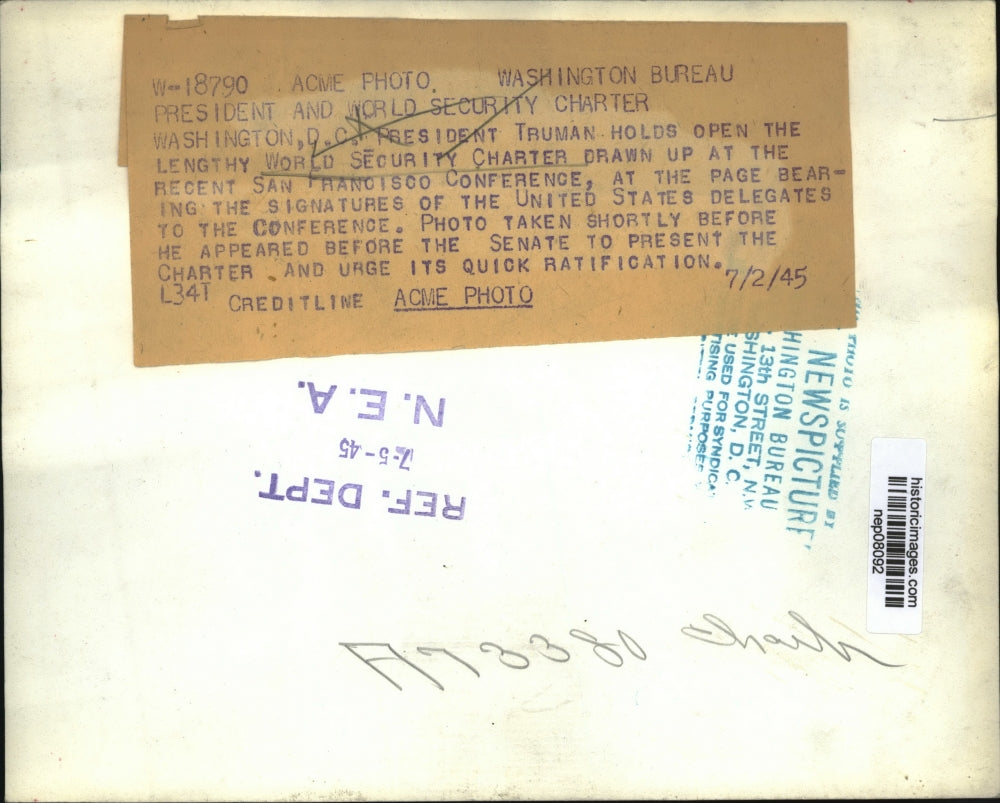 W-18790 ACME PHOTO. WASHINGTON BUREAU
PRESIDENT AND WORLD SECURITY CHARTER
WASHINGTON, D.C. PRESIDENT TRUMAN HOLDS OPEN THE
LENGTHY WORLD SECURITY CHARTER DRAWN UP AT THE
RECENT SAN FRANCISCO CONFERENCE, AT THE PAGE BEAR-
ING THE SIGNATURES OF THE UNITED STATES DELEGATES
TO THE CONFERENCE. PHOTO TAKEN SHORTLY BEFORE
HE APPEARED BEFORE THE SENATE TO PRESENT THE
CHARTER AND URGE ITS QUICK RATIFICATION.
L34T CREDITLINE ACME PHOTO 7/2/45
IS SUPPLIED BY
NEWSPICTURE
HINGTON BUREAU
13th STREET, N.W.
SHINGTON, D. C.
USED FOR SYNDICA
ISING PURPOSES
REF. DEPT.
7-5-45
N. E. A.
historicimages.com
nep08092
A73380